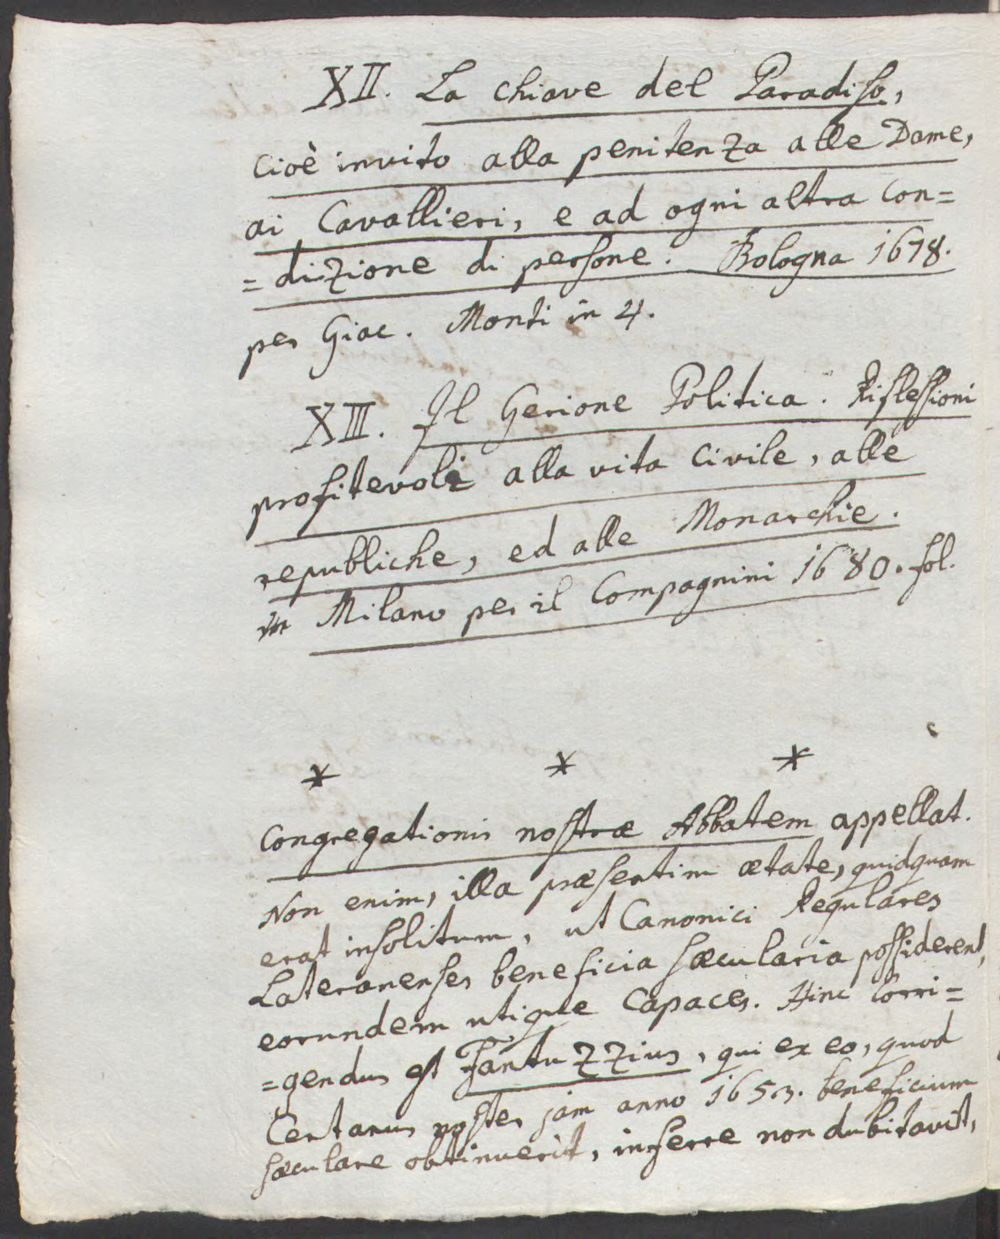 XII. La chiave del Paradiso,
cioè invito alla penitenza alle Dame,
ai Cavallieri, e ad ogni altra con=
=dizione di persone. Bologna 1678.
per Giac. Monti in 4.
XIII. Il Gerione Politica. Riflessioni
profitevoli alla vita civile, alle
republiche, ed alle Monarchie.
in Milano per il Compagnini 1680. fol.
* * *
Congregationis nostræ Abbatem appellat.
Non enim, illa præsertim ætate, quidquam
erat insolitum, ut Canonici Regulares
Lateranenses beneficia sæcularia possiderent,
eorundem utique capaces. Hinc Corri=
=gendus est Fantuzzius, qui ex eo, quod
Certanus noster jam anno 1653. beneficium
sæculare obtinuerit, inferre non dubitavit,